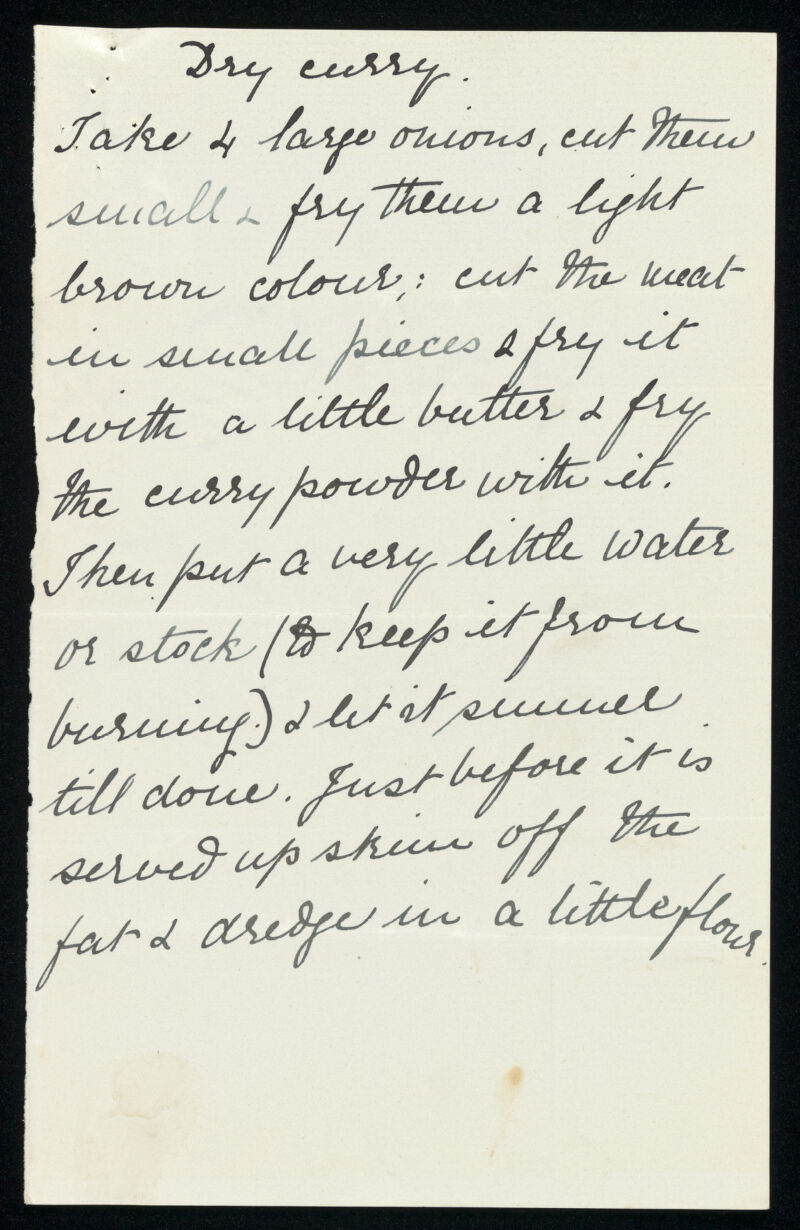 Dry curry.
Take 4 large onions, cut them
small & fry them a light
brown colour; : cut the meat
in small pieces & fry it
with a little butter & fry
the curry powder with it.
Then put a very little water
or stock (to keep it from
burning.) & let it simmer
till done. Just before it is
served up skim off the
fat & dredge in a little flour.